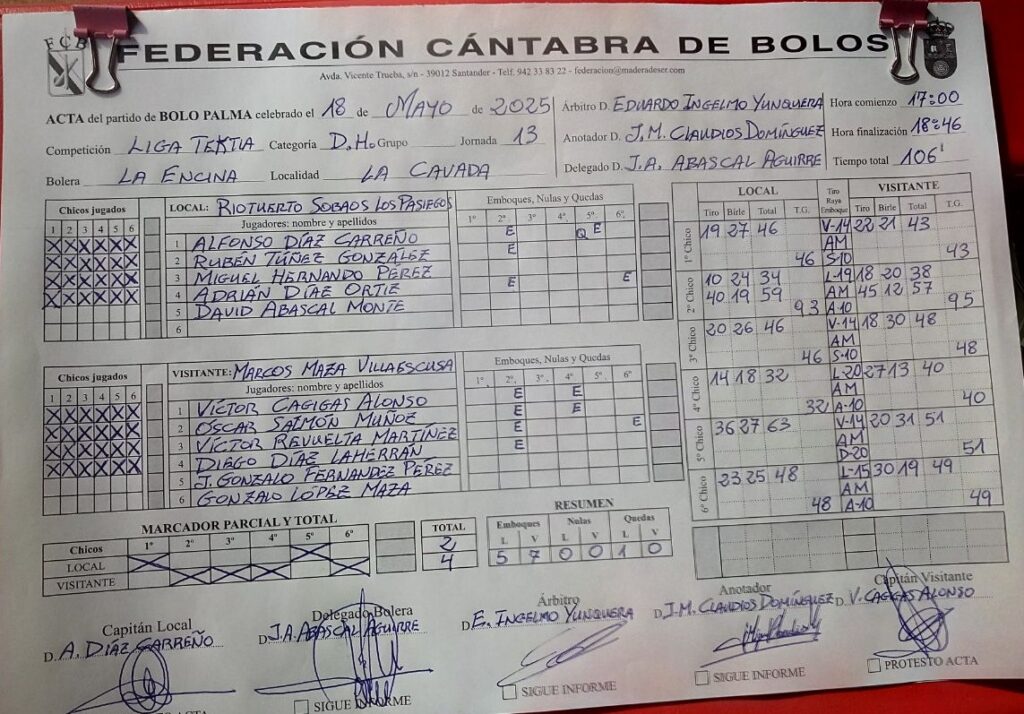 FCB
FEDERACIÓN CÁNTABRA DE BOLOS
Avda. Vicente Trueba, s/n - 39012 Santander - Telf. 942 33 83 22 - federacion@maderadeser.com
ACTA del partido de BOLO PALMA celebrado el 18 de MAYO de 2025
Competición LIGA TEKTIA Categoría D.H. Grupo Jornada 13
Bolera LA ENCINA Localidad LA CAVADA
Árbitro D. EDUARDO INGELMO YUNQUERA
Anotador D. J.M. CLAUDIOS DOMÍNGUEZ
Delegado D. J.A. ABASCAL AGUIRRE
Hora comienzo 17:00
Hora finalización 18:46
Tiempo total 106'
Chicos jugados
1 2 3 4 5 6
X X X X X X
X X X X X X
X X X X X X
X X X X X X
LOCAL: RIOTUERTO SOBAOS LOS PASIEGOS
Jugadores: nombre y apellidos
1 ALFONSO DÍAZ CARREÑO
2 RUBÉN TÚÑEZ GONZÁLEZ
3 MIGUEL HERNANDO PÉREZ
4 ADRIÁN DÍAZ ORTIZ
5 DAVID ABASCAL MONTE
6
Emboques, Nulas y Quedas
1º 2º 3º 4º 5º 6º
E Q E
E
E E
Chicos jugados
1 2 3 4 5 6
X X X X X X
X X X X X X
X X X X X X
X X X X X X
VISITANTE: MARCOS MAZA VILLAESCUSA
Jugadores: nombre y apellidos
1 VÍCTOR CAGIGAS ALONSO
2 OSCAR SALMÓN MUÑOZ
3 VÍCTOR REVUELTA MARTÍNEZ
4 DIEGO DÍAZ LAHERRÁN
5 J. GONZALO FERNÁNDEZ PÉREZ
6 GONZALO LÓPEZ MAZA
Emboques, Nulas y Quedas
1º 2º 3º 4º 5º 6º
E E
E E
E E
E
LOCAL Tiro Raya Emboque VISITANTE
Tiro Birle Total T.G. Tiro Birle Total T.G.
1º Chico 19 27 46 V-14 22 21 43
AM
46 S-10 43
2º Chico 10 24 34 L-19 18 20 38
40 19 59 AM 45 12 57
93 A-10 95
3º Chico 20 26 46 V-14 18 30 48
AM
46 S-10 48
4º Chico 14 18 32 L-20 27 13 40
AM
32 A-10 40
5º Chico 36 27 63 V-14 20 31 51
AM
D-20 51
6º Chico 23 25 48 L-15 30 19 49
AM
48 A-10 49
MARCADOR PARCIAL Y TOTAL
Chicos 1º 2º 3º 4º 5º 6º TOTAL
LOCAL X X 2
VISITANTE X X X X 4
RESUMEN
Emboques Nulas Quedas
L V L V L V
5 7 0 0 1 0
Capitán Local
D. A. DÍAZ CARREÑO
Delegado Bolera
D. J.A. ABASCAL AGUIRRE
SIGUE INFORME
Árbitro
D. E. INGELMO YUNQUERA
SIGUE INFORME
Anotador
D. J.M. CLAUDIOS DOMÍNGUEZ
SIGUE INFORME
Capitán Visitante
D. V. CAGIGAS ALONSO
PROTESTO ACTA